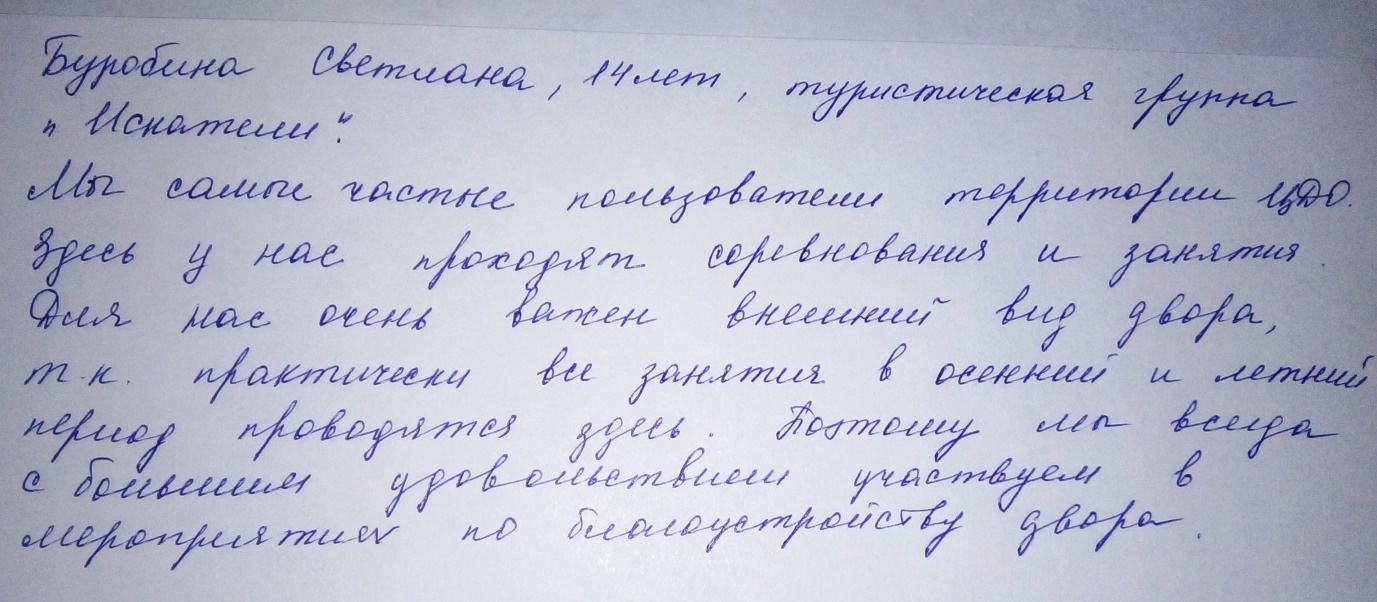 Буробина Светлана, 14 лет, туристическая группа
„Искатели“.
Мы самые частые пользователи территории ЦДО.
Здесь у нас проходят соревнования и занятия.
Для нас очень важен внешний вид двора,
т.к. практически все занятия в осенний и летний
период проводятся здесь. Поэтому мы всегда
с большим удовольствием участвуем в
мероприятиях по благоустройству двора.